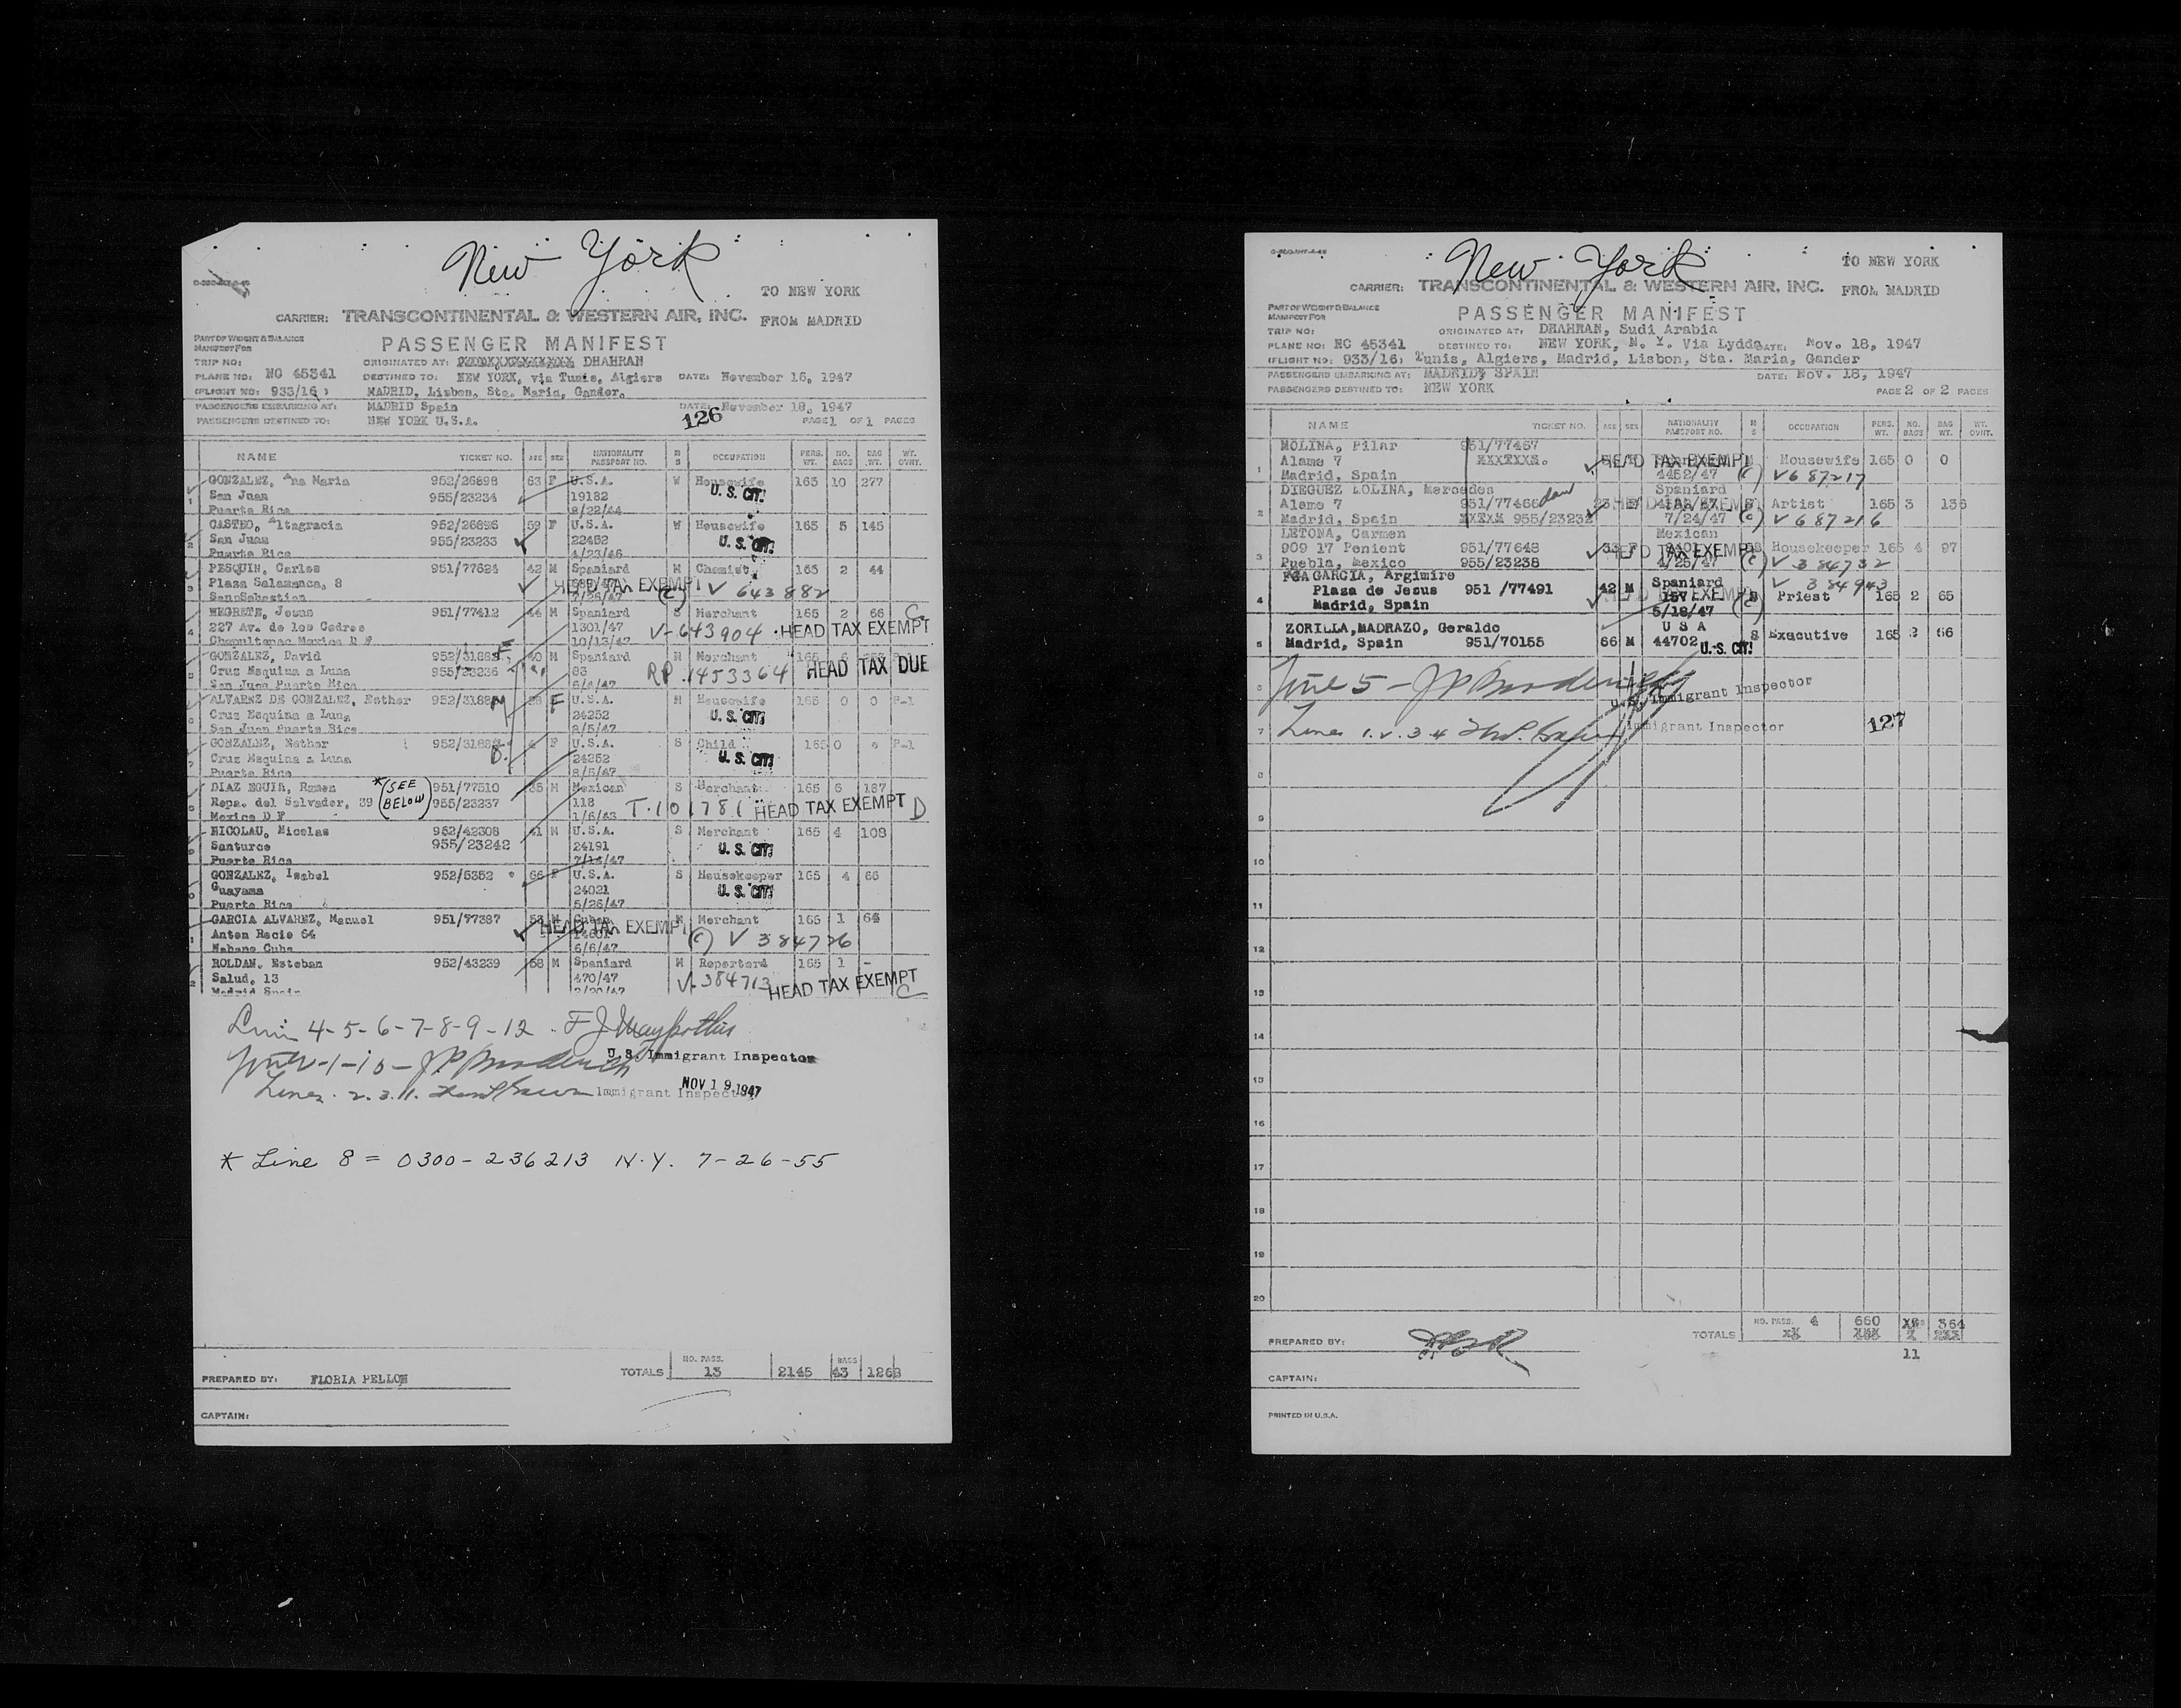 New York
TO NEW YORK
CARRIER: TRANSCONTINENTAL & WESTERN AIR, INC. FROM MADRID
PART OF WEIGHT & BALANCE
MANIFEST FOR
PASSENGER MANIFEST
TRIP NO: ORIGINATED AT: DHAHRAN
PLANE NO: NC 45341 DESTINED TO: NEW YORK, via Tunis, Algiers DATE: November 16, 1947
(FLIGHT NO: 933/16) MADRID, Lisbon, Sta. Maria, Gander,
PASSENGERS EMBARKING AT: MADRID Spain DATE: November 18, 1947
126
PASSENGERS DESTINED TO: NEW YORK U.S.A. PAGE 1 OF 1 PAGES
NAME TICKET NO. AGE SEX NATIONALITY PASSPORT NO. M S OCCUPATION PERS. WT. NO. BAGS BAG WT. WT. OVHT.
GONZALEZ, Ana Maria 952/26898 63 F U.S.A. W Housewife 165 10 277
1 San Juan 955/23234 19182 U. S. CIT.
Puerto Rico 8/22/44
CASTRO, Altagracia 952/26896 59 F U.S.A. W Housewife 165 5 145
2 San Juan 955/23233 22452 U. S. CIT.
Puerto Rico 4/23/46
PESQUIN, Carlos 951/77624 42 M Spaniard M Chemist 165 2 44
3 Plaza Salamanca, 8 HEAD TAX EXEMPT (C) V 643882
SannSebastian 7/26/47
NEGRETE, Jesus 951/77412 44 M Spaniard S Merchant 165 2 66 C
4 227 Av. de los Cedros 1301/47 V-643904 HEAD TAX EXEMPT
Chapultepec Mexico D F 10/13/47
GONZALEZ, David 952/31882 F. 40 M Spaniard M Merchant 165
5 Cruz Esquina a Luna 955/23236 83 RP. 1453364 HEAD TAX DUE
San Juan Puerto Rico 6/4/47
ALVAREZ DE GONZALEZ, Esther 952/3188 M 28 F U.S.A. M Housewife 165 0 0 P-1
Cruz Esquina a Luna 24252 U. S. CIT.
San Juan Puerto Rico 8/5/47
GONZALEZ, Esther 952/3188 D. F U.S.A. S Child 165 0 0 P-1
Cruz Esquina a Luna 24252 U. S. CIT.
Puerto Rico 8/5/47
DIAZ EGUIA, Ramon * (SEE BELOW) 951/77510 35 M Mexican S Merchant 165 6 187
Repa. del Salvador, 39 955/23237 118 T-101781 HEAD TAX EXEMPT D
Mexico D F 1/6/43
NICOLAU, Nicolas 952/42308 41 M U.S.A. S Merchant 165 4 108
Santurce 955/23242 24191 U. S. CIT.
Puerto Rico 7/14/47
GONZALEZ, Isabel 952/5352 66 F U.S.A. S Housekeeper 165 4 66
Guayama 24021 U. S. CIT.
Puerto Rico 5/26/47
GARCIA ALVAREZ, Manuel 951/77387 53 M Cuban M Merchant 165 1 64
Anton Recio 64 HEAD TAX EXEMPT (C) V 384726
Habana Cuba 6/6/47
ROLDAN, Esteban 952/43239 58 M Spaniard M Reporterd 165 1 -
Salud, 13 470/47 V-384713 HEAD TAX EXEMPT C
Madrid Spain 2/20/47
4-5-6-7-8-9-12
U. S. Immigrant Inspector
1-10
NOV 19 1947
Lines 2.3.11. Immigrant Inspector
* Line 8 = 0300-236213 N.Y. 7-26-55
TOTALS NO. PASS. 13 2145 BAGS 43 1268
PREPARED BY: FLORIA PELLON
CAPTAIN:
New York
TO NEW YORK
CARRIER: TRANSCONTINENTAL & WESTERN AIR, INC. FROM MADRID
PART OF WEIGHT & BALANCE
MANIFEST FOR
PASSENGER MANIFEST
TRIP NO: ORIGINATED AT: DHAHRAN, Sudi Arabia
PLANE NO: NC 45341 DESTINED TO: NEW YORK, N. Y. Via Lydda DATE: Nov. 18, 1947
(FLIGHT NO: 933/16) Tunis, Algiers, Madrid, Lisbon, Sta. Maria, Gander
PASSENGERS EMBARKING AT: MADRID, SPAIN DATE: Nov. 18, 1947
PASSENGERS DESTINED TO: NEW YORK PAGE 2 OF 2 PAGES
NAME TICKET NO. AGE SEX NATIONALITY PASSPORT NO. M S OCCUPATION PERS. WT. NO. BAGS BAG WT. WT. OVHT.
MOLINA, Pilar 951/77467
1 Alamo 7 HEAD TAX EXEMPT Housewife 165 0 0
Madrid, Spain 4452/47 (C) V 687217
DIEGUEZ LOLINA, Mercedes Spaniard
2 Alamo 7 951/77466 dau 23 F HEAD TAX EXEMPT S Artist 165 3 136
Madrid, Spain 955/23232 7/24/47 (C) V 687216
LETONA, Carmen Mexican
3 909 17 Penient 951/77648 HEAD TAX EXEMPT Housekeeper 165 4 97
Puebla, Mexico 955/23238 4/25/47 (C) V 384732
GARCIA, Argimiro V 384943
4 Plaza de Jesus 951 /77491 42 M Spaniard HEAD TAX EXEMPT S Priest 165 2 65
Madrid, Spain 5/18/47 (C)
ZORILLA,MADRAZO, Geraldo U S A
5 Madrid, Spain 951/70155 66 M 44702 U. S. CIT. S Executive 165 2 66
6 5 U. S. Immigrant Inspector
7 Lines 1.2.3.4 Immigrant Inspector 127
8
9
10
11
12
13
14
15
16
17
18
19
20
TOTALS NO. PASS. 4 660 364
11
PREPARED BY:
CAPTAIN:
PRINTED IN U.S.A.